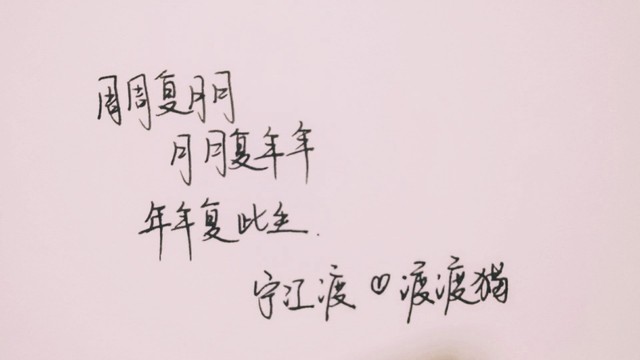 周周复月月
月月复年年
年年复此生.
宁江渡♡渡渡猫